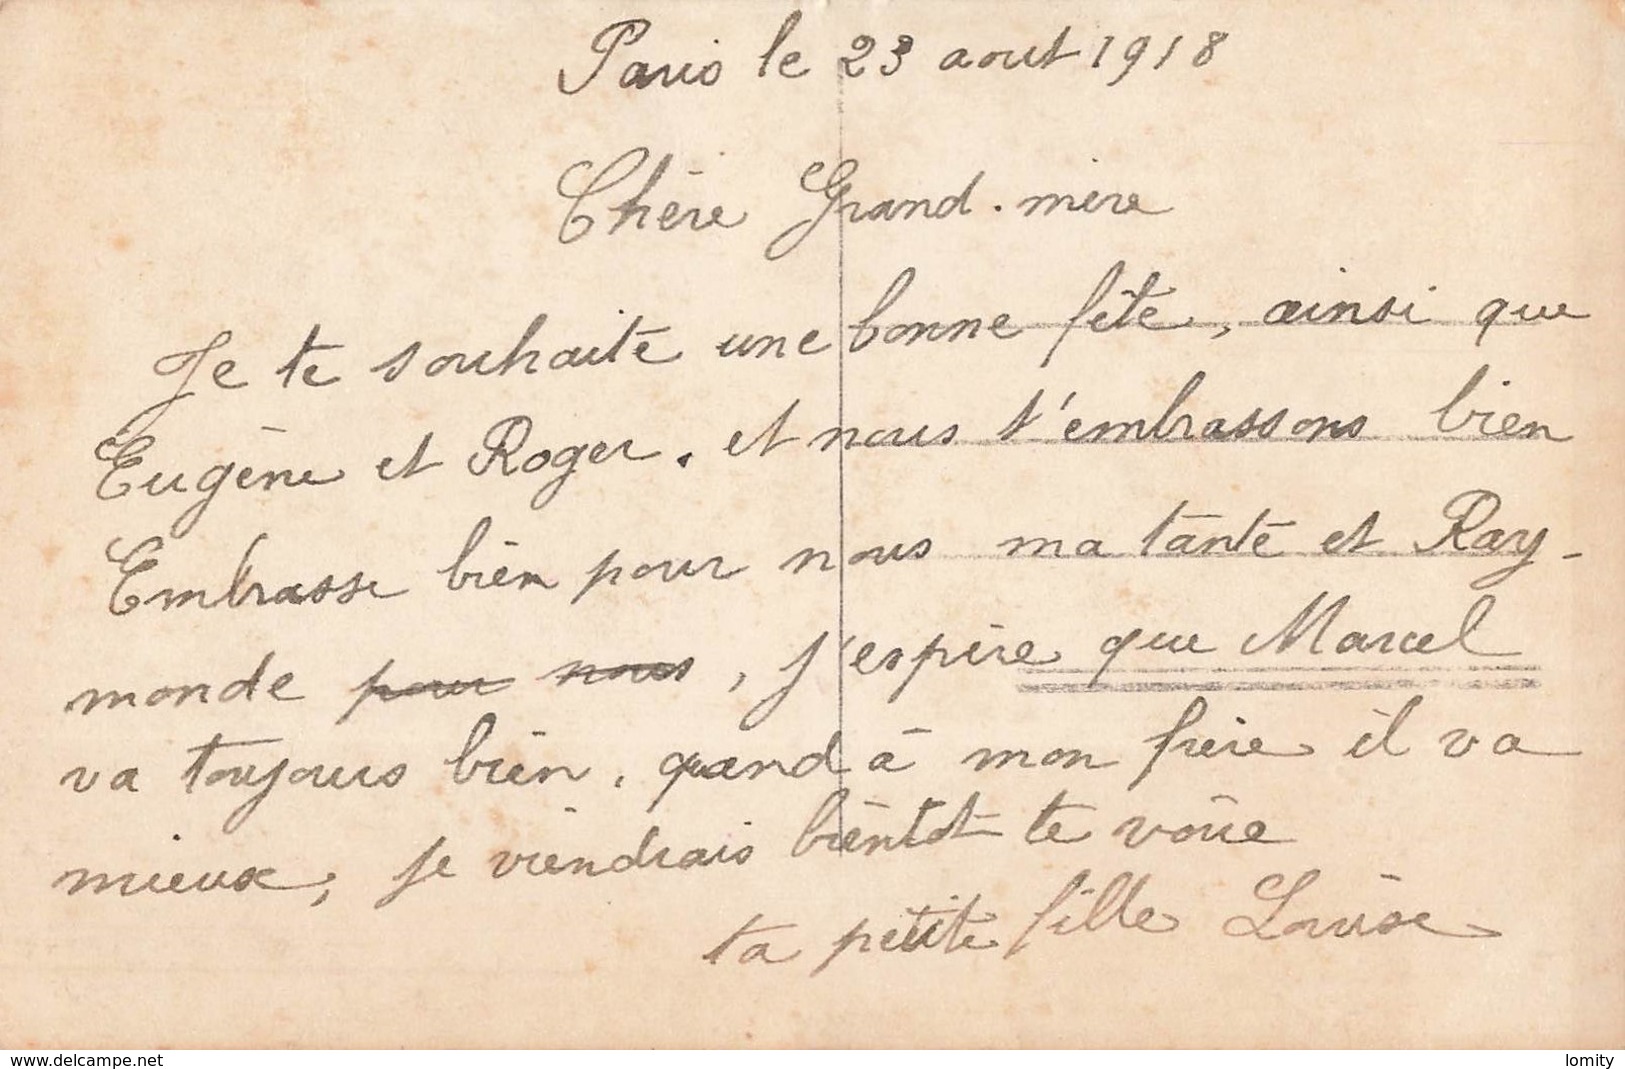 Paris le 23 aout 1918
Chère Grand-mère
Je te souhaite une bonne fête, ainsi que
Eugène et Roger. et nous t'embrassons bien
Embrasse bien pour nous ma tante et Ray-
monde pour nous, j'espère que Marcel
va toujours bien, quand à mon frère il va
mieux, je viendrais bientôt te voire
ta petite fille Louise
www.delcampe.net
lomity